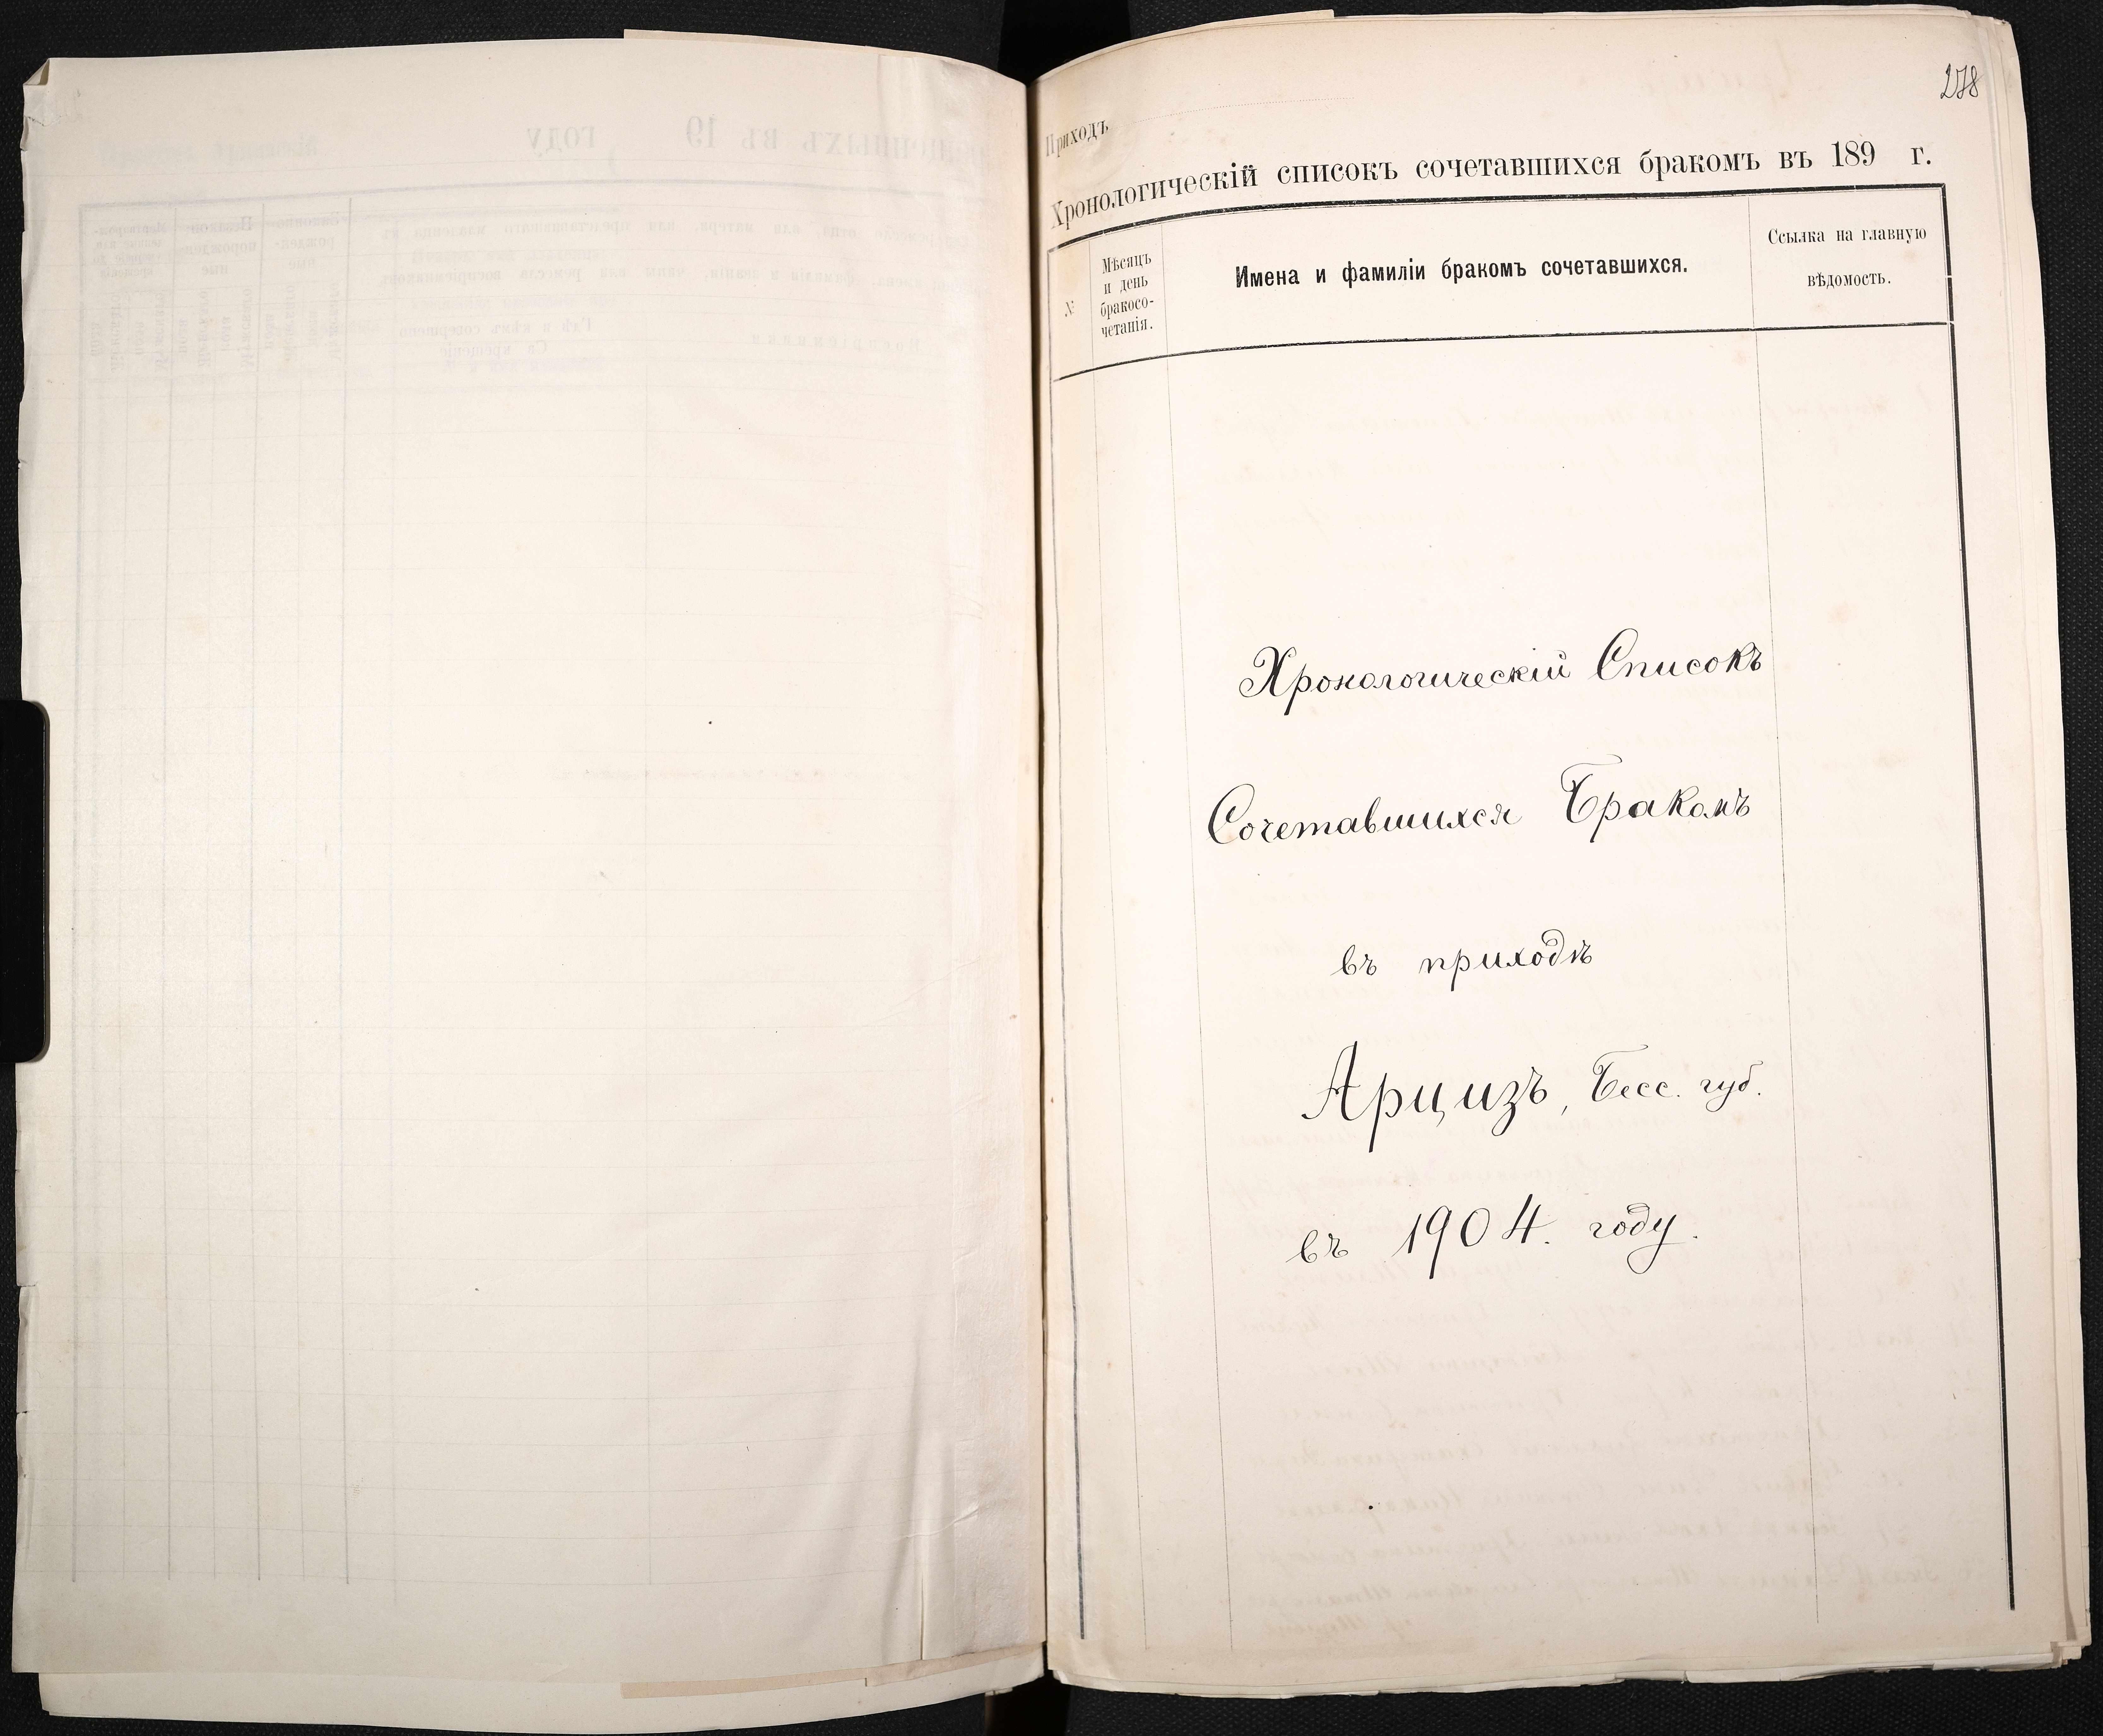 278
Приходъ
Хронологическій списокъ сочетавшихся бракомъ въ 189 г.
№
Мѣсяцъ
и день
бракосо-
четанія.
Имена и фамиліи бракомъ сочетавшихся.
Ссылка на главную
вѣдомость.
Хронологическій Списокъ
Сочетавшихся Бракомъ
въ приходѣ
Арцизъ, Бесс. губ.
въ 1904. году.